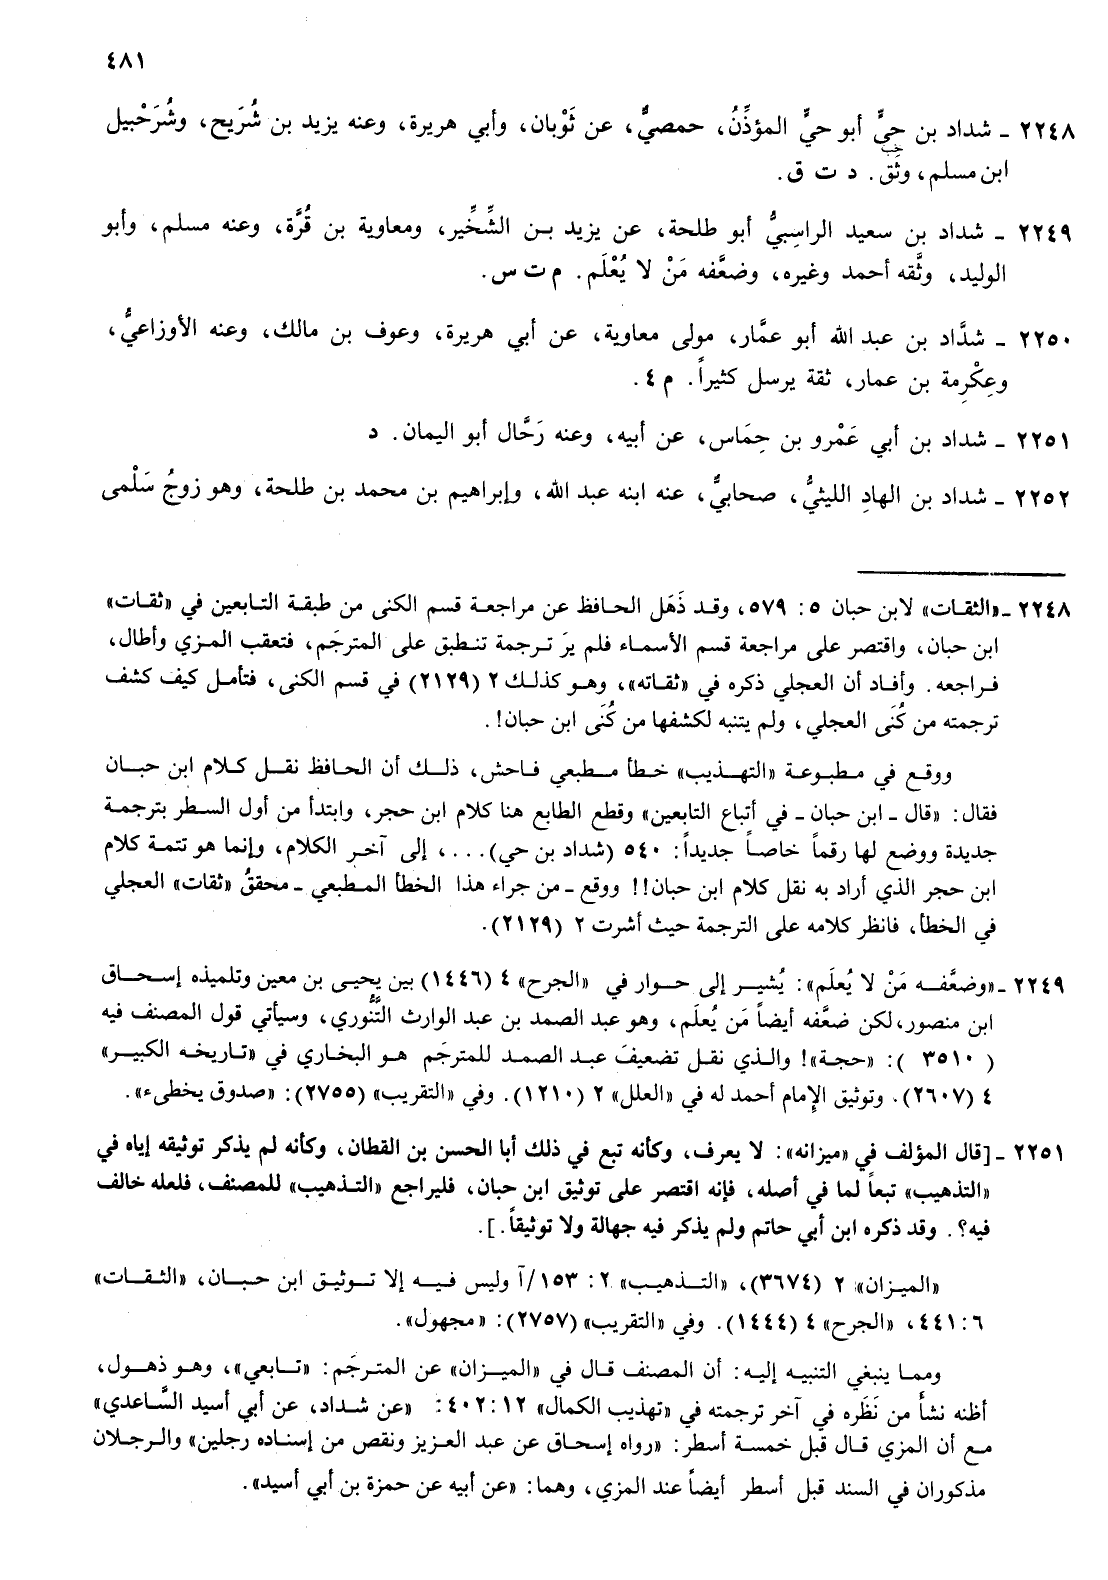 ٤٨١
٢٢٤٨ ـ شداد بن حيٍّ أبو حيٍّ المؤذِّنُ، حمصيٌّ، عن ثَوْبان، وأبي هريرة، وعنه يزيد بن شُرَيح، وشُرَحْبيل
ابن مسلم، وثِّق. د ت ق.
٢٢٤٩ ـ شداد بن سعيد الراسِبيُّ أبو طلحة، عن يزيد بن الشِّخِّير، ومعاوية بن قُرَّة، وعنه مسلم، وأبو
الوليد، وثَّقه أحمد وغيره، وضعَّفه مَنْ لا يُعْلَم. م ت س.
٢٢٥٠ ـ شدَّاد بن عبد الله أبو عمَّار، مولى معاوية، عن أبي هريرة، وعوف بن مالك، وعنه الأوزاعيُّ،
وعِكْرِمة بن عمار، ثقة يرسل كثيراً. م ٤.
٢٢٥١ ـ شداد بن أبي عَمْرو بن حِمَاس، عن أبيه، وعنه رَحَّال أبو اليمان. د
٢٢٥٢ ـ شداد بن الهادِ الليثيُّ، صحابيٌّ، عنه ابنه عبد الله، وإبراهيم بن محمد بن طلحة، وهو زوجُ سَلْمى
٢٢٤٨ ـ «الثقات» لابن حبان ٥: ٥٧٩، وقد ذَهَل الحافظ عن مراجعة قسم الكنى من طبقة التابعين في «ثقات»
ابن حبان، واقتصر على مراجعة قسم الأسماء فلم يرَ ترجمة تنطبق على المترجَم، فتعقب المزي وأطال،
فراجعه. وأفاد أن العجلي ذكره في «ثقاته»، وهو كذلك ٢ (٢١٢٩) في قسم الكنى، فتأمل كيف كشف
ترجمته من كُنَى العجلي، ولم يتنبه لكشفها من كُنَى ابن حبان!.
ووقع في مطبوعة «التهذيب» خطأ مطبعي فاحش، ذلك أن الحافظ نقل كلام ابن حبان
فقال: «قال ـ ابن حبان ـ في أتباع التابعين» وقطع الطابع هنا كلام ابن حجر، وابتدأ من أول السطر بترجمة
جديدة ووضع لها رقماً خاصاً جديداً: ٥٤٠ (شداد بن حي)...، إلى آخر الكلام، وإنما هو تتمة كلام
ابن حجر الذي أراد به نقل كلام ابن حبان!! ووقع ـ من جراء هذا الخطأ المطبعي ـ محققُ «ثقات» العجلي
في الخطأ، فانظر كلامه على الترجمة حيث أشرت ٢ (٢١٢٩).
٢٢٤٩ ـ «وضعَّفه مَنْ لا يُعلَم»: يُشير إلى حوار في «الجرح» ٤ (١٤٤٦) بين يحيى بن معين وتلميذه إسحاق
ابن منصور، لكن ضعَّفه أيضاً مَن يُعلَم، وهو عبد الصمد بن عبد الوارث التَّنُّوري، وسيأتي قول المصنف فيه
( ٣٥١٠ ): «حجة»! والذي نقل تضعيفَ عبد الصمد للمترجَم هو البخاري في «تاريخه الكبير»
٤ (٢٦٠٧). وتوثيق الإمام أحمد له في «العلل» ٢ (١٢١٠). وفي «التقريب» (٢٧٥٥): «صدوق يخطىء».
٢٢٥١ ـ [قال المؤلف في «ميزانه»: لا يعرف، وكأنه تبع في ذلك أبا الحسن بن القطان، وكأنه لم يذكر توثيقه إياه في
«التذهيب» تبعاً لما في أصله، فإنه اقتصر على توثيق ابن حبان، فليراجع «التذهيب» للمصنف، فلعله خالف
فيه؟. وقد ذكره ابن أبي حاتم ولم يذكر فيه جهالة ولا توثيقاً.].
«الميزان» ٢ (٣٦٧٤)، «التذهيب» ٢: ١٥٣/آ وليس فيه إلا توثيق ابن حبان، «الثقات»
٦: ٤٤١، «الجرح» ٤ (١٤٤٤). وفي «التقريب» (٢٧٥٧): «مجهول».
ومما ينبغي التنبيه إليه: أن المصنف قال في «الميزان» عن المترجَم: «تابعي»، وهو ذهول،
أظنه نشأ من نَظَره في آخر ترجمته في «تهذيب الكمال» ١٢: ٤٠٢: «عن شداد، عن أبي أسيد السَّاعدي»
مع أن المزي قال قبل خمسة أسطر: «رواه إسحاق عن عبد العزيز ونقص من إسناده رجلين» والرجلان
مذكوران في السند قبل أسطر أيضاً عند المزي، وهما: «عن أبيه عن حمزة بن أبي أسيد».